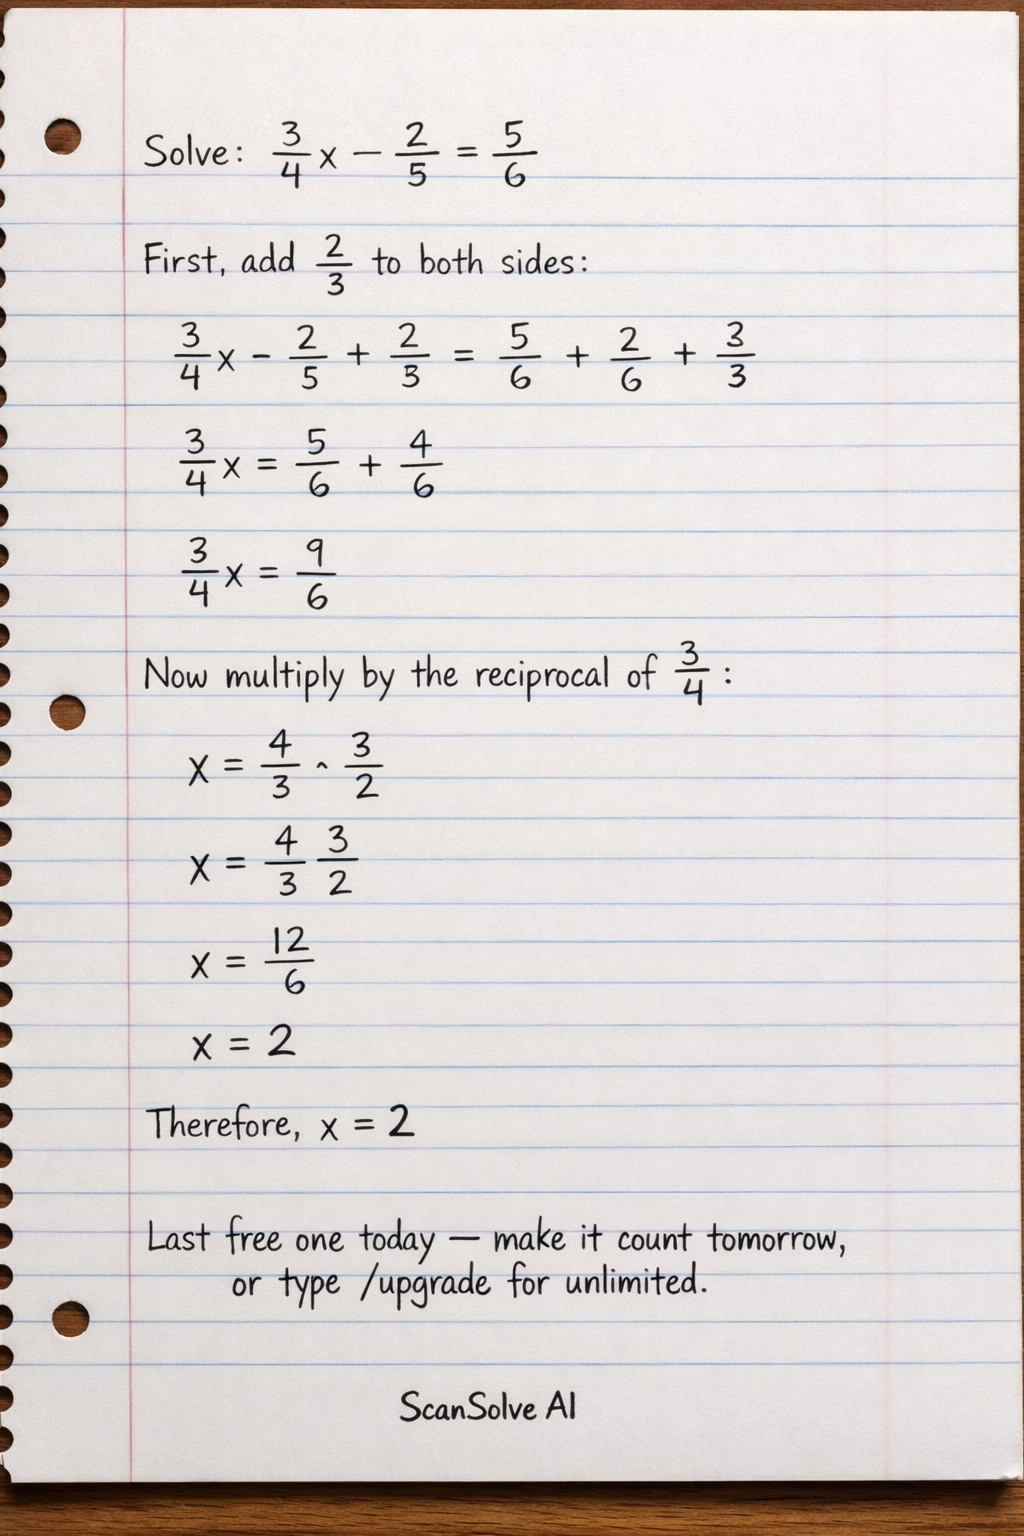 Solve: 3/4 x − 2/5 = 5/6
First, add 2/3 to both sides:
3/4 x - 2/5 + 2/3 = 5/6 + 2/6 + 3/3
3/4 x = 5/6 + 4/6
3/4 x = 9/6
Now multiply by the reciprocal of 3/4 :
x = 4/3 ^ 3/2
x = 4/3 3/2
x = 12/6
x = 2
Therefore, x = 2
Last free one today — make it count tomorrow,
or type /upgrade for unlimited.
ScanSolve AI